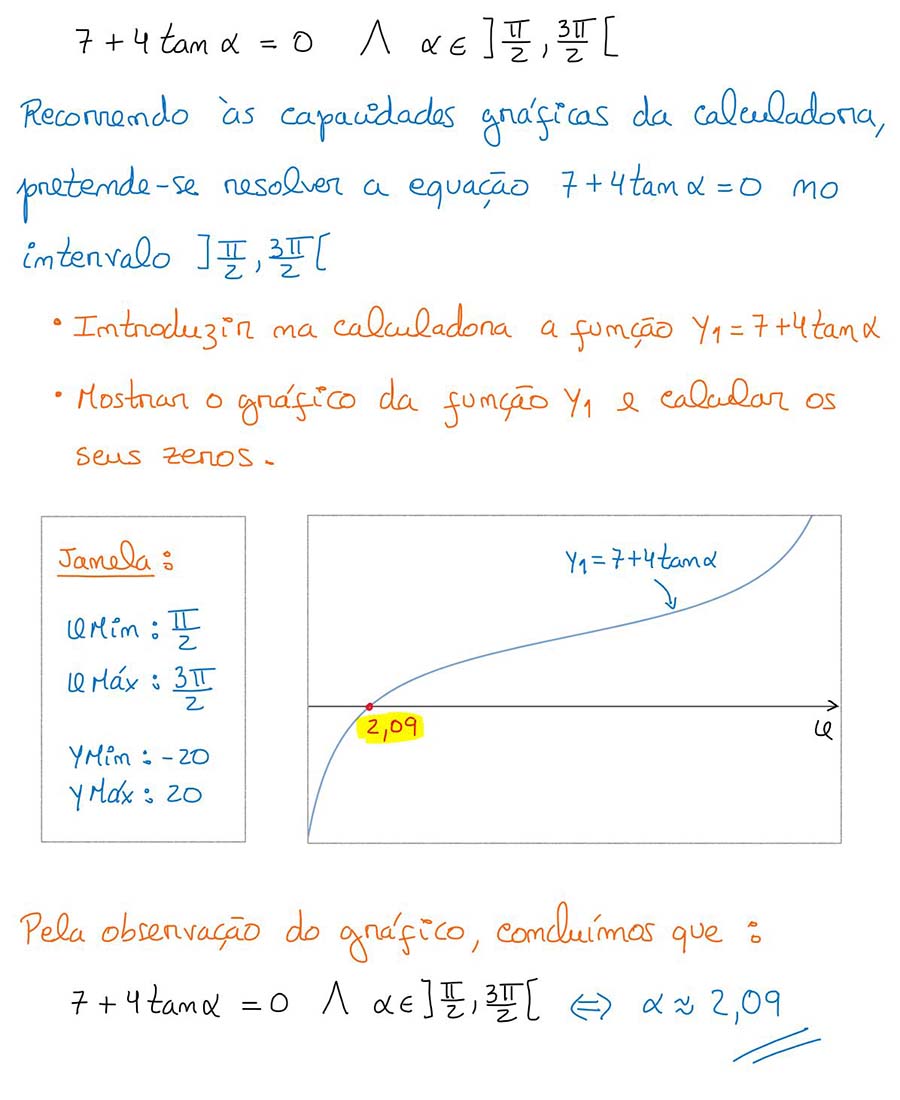 7 + 4 tan α = 0 ∧ α ∈ ]π/2, 3π/2[
Recorrendo às capacidades gráficas da calculadora,
pretende-se resolver a equação 7 + 4 tan α = 0 no
intervalo ]π/2, 3π/2[
• Introduzir na calculadora a função Y₁ = 7 + 4 tan α
• Mostrar o gráfico da função Y₁ e calcular os
seus zeros.
Janela:
φMín: π/2
φMáx: 3π/2
YMín: -20
YMáx: 20
Y₁ = 7 + 4 tan α
2,09
φ
Pela observação do gráfico, concluímos que:
7 + 4 tan α = 0 ∧ α ∈ ]π/2, 3π/2[ ⇔ α ≈ 2,09